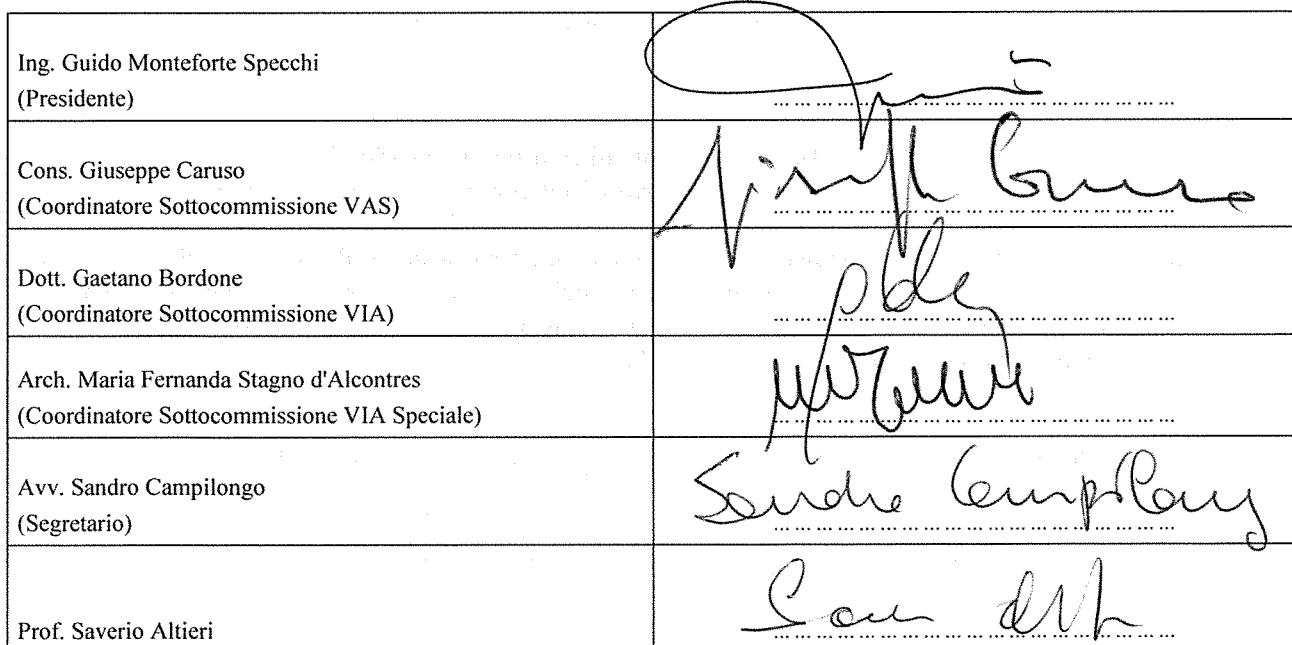 Ing. Guido Monteforte Specchi
(Presidente)
Cons. Giuseppe Caruso
(Coordinatore Sottocommissione VAS)
Dott. Gaetano Bordone
(Coordinatore Sottocommissione VIA)
Arch. Maria Fernanda Stagno d'Alcontres
(Coordinatore Sottocommissione VIA Speciale)
Avv. Sandro Campilongo
(Segretario)
Sandro Campilong
Prof. Saverio Altieri